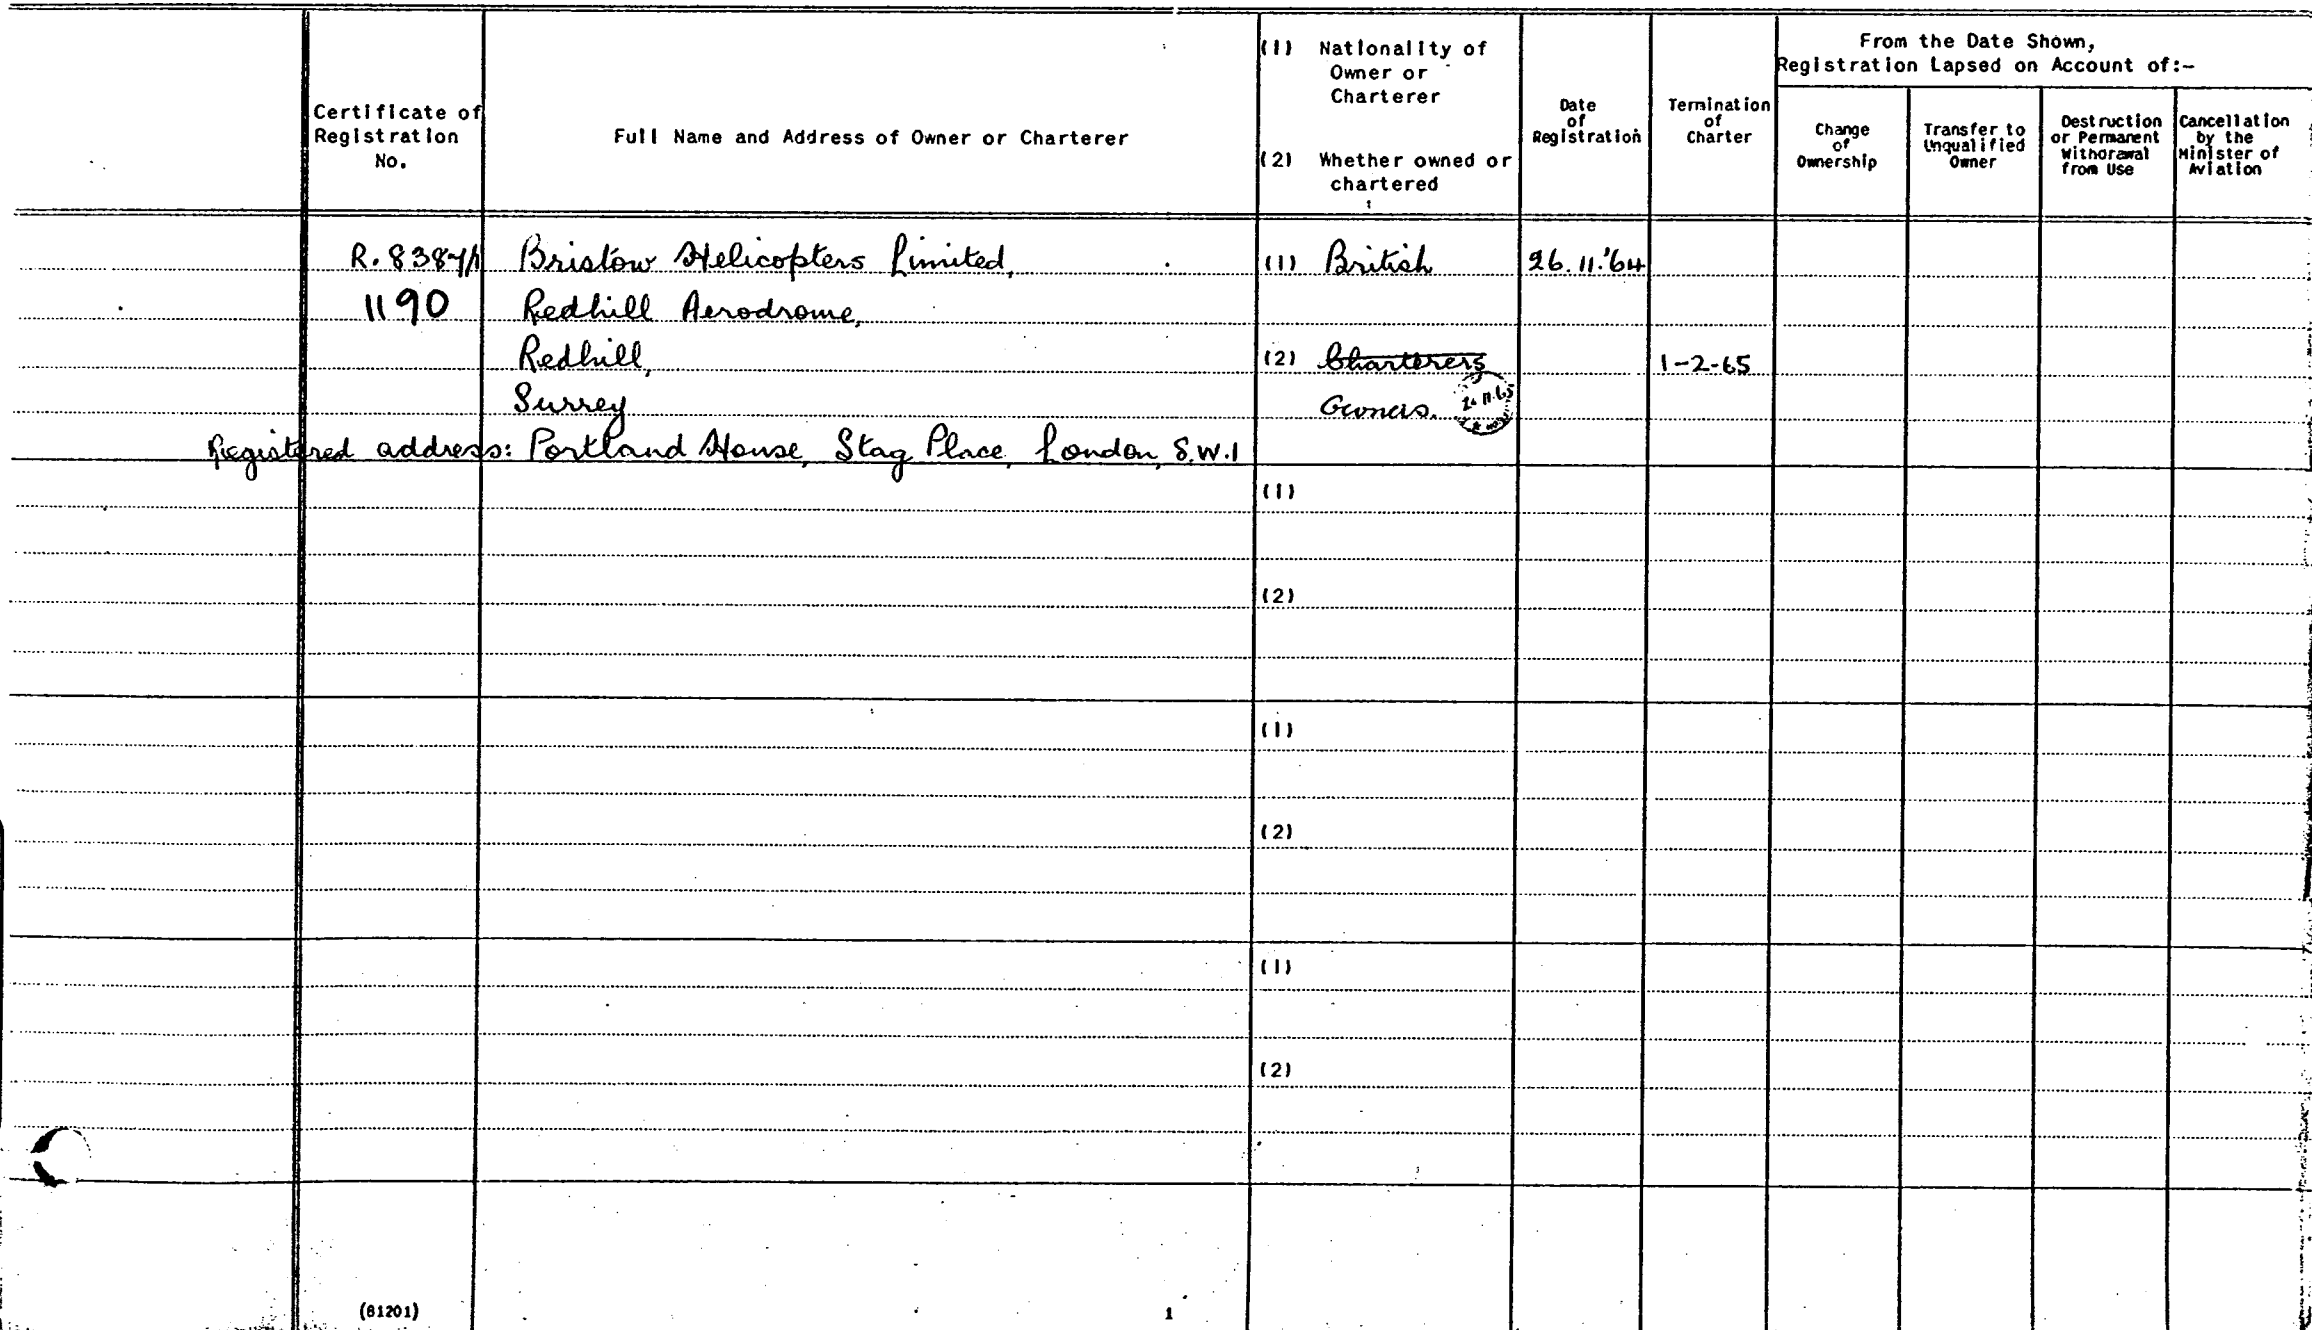 Certificate of
Registration
No.
Full Name and Address of Owner or Charterer
(1) Nationality of
Owner or
Charterer
(2) Whether owned or
chartered
Date
of
Registration
Termination
of
Charter
From the Date Shown,
Registration Lapsed on Account of:-
Change
of
Ownership
Transfer to
Unqualified
Owner
Destruction
or Permanent
Withdrawal
from Use
Cancellation
by the
Minister of
Aviation
R. 8387/1 Bristow Helicopters Limited, (1) British 26.11.'64
1190 Redhill Aerodrome,
Redhill, (2) Charterers 1-2-65
Surrey Owners.
Registered address: Portland House, Stag Place, London, S.W.1
(1)
(2)
(1)
(2)
(1)
(2)
(81201) 1